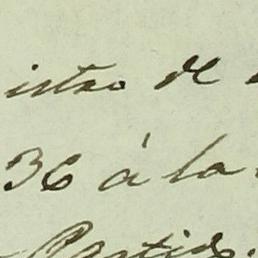 istro de
36 á la
Partida